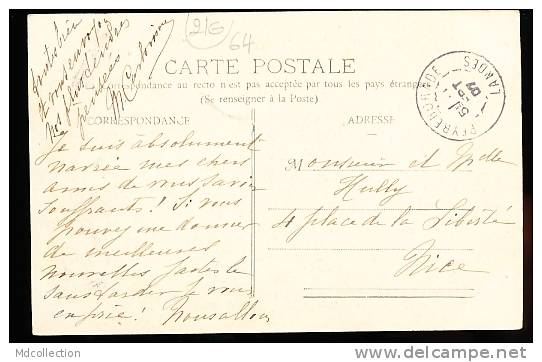 toutes bien
& vous envoyons
nos plus sincères
pensées
M
216
64
CARTE POSTALE
La Correspondance au recto n'est pas acceptée par tous les pays étrangers
(Se renseigner à la Poste)
CORRESPONDANCE
ADRESSE
PEYREHORADE
LANDES
SEPT
07
Je suis absolument
navrée mes chers
amis de vous savoir
souffrants! Si vous
pouvez me donner
de meilleures
nouvelles faites le
sans tarder je vous
en prie! Nous allons
Monsieur et Mlle
Hully
4 place de la Liberté
Nice
Mdcollection
delcampe.net